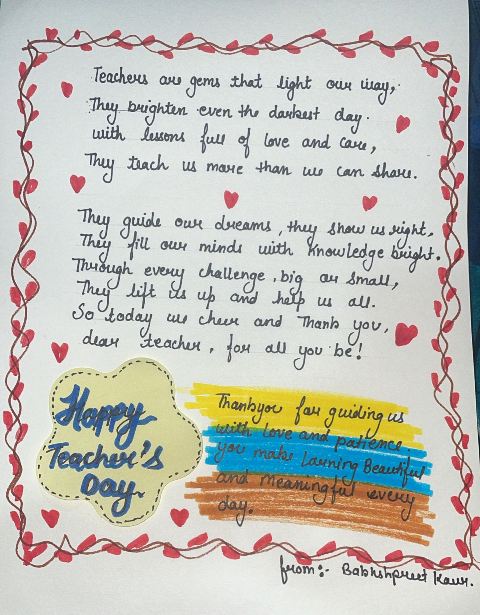 Teachers are gems that light our way,
They brighten even the darkest day.
with lessons full of love and care,
They teach us more than we can share.
They guide our dreams, they show us right,
They fill our minds with knowledge bright.
Through every challenge, big or small,
They lift us up and help us all.
So today we cheer and Thank you,
dear teacher, for all you be!
Happy
Teacher's
Day.
Thankyou for guiding us
with love and patience
you make Larning Beautiful
and Meaningful every
day.
from:- Bakhshpreet Kaur.